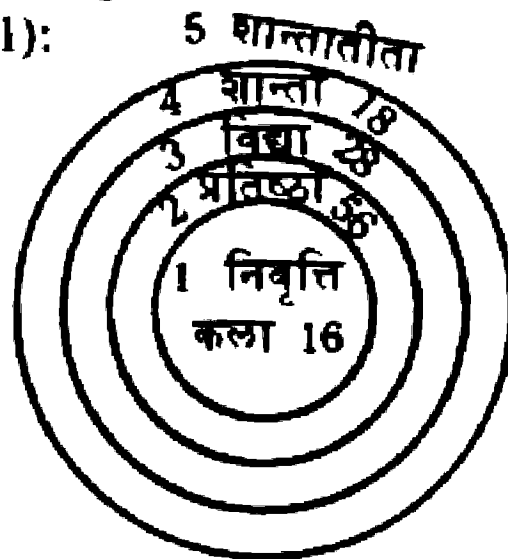 1):
5 शान्तातीता
4 शान्ता 18
3 विद्या 28
2 प्रतिष्ठा 56
1 निवृत्ति
कला 16